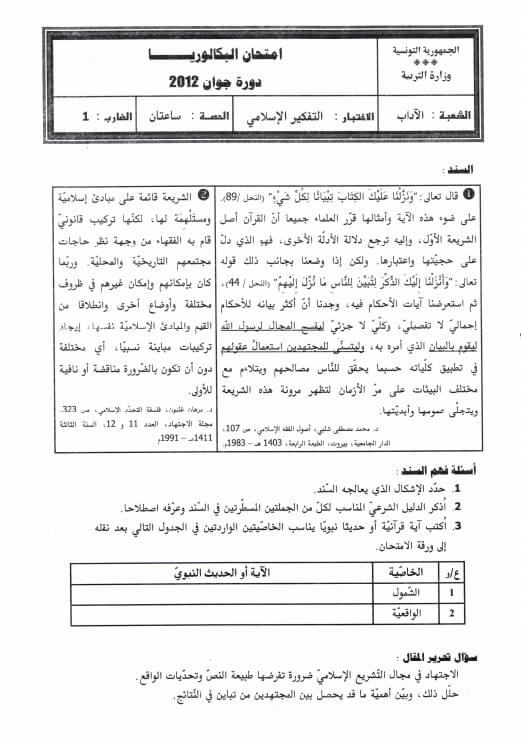 الجمهورية التونسية
***
وزارة التربية
امتحان البكالوريا
دورة جوان 2012
الشعبة : الآداب
الاختبار : التفكير الإسلامي
الحصة : ساعتان
الضارب : 1
السند :
❶ قال تعالى:"وَنَزَّلْنَا عَلَيْكَ الكِتَابَ تِبْيَانًا لِكُلِّ شَيْءٍ" (النحل /89).
على ضوء هذه الآية وأمثالها قرّر العلماء جميعا أنّ القرآن أصل
الشريعة الأوّل، وإليه ترجع دلالة الأدلّة الأخرى، فهو الذي دلّ
على حجيّتها واعتبارها. ولكن إذا وضعنا بجانب ذلك قوله
تعالى:"وَأَنْزَلْنَا إِلَيْكَ الذِّكْرَ لِتُبَيِّنَ لِلنَّاسِ مَا نُزِّلَ إِلَيْهِمْ" (النحل / 44)،
ثم استعرضنا آيات الأحكام فيه، وجدنا أنّ أكثر بيانه للأحكام
إجماليّ لا تفصيليّ، وكلّيّ لا جزئيّ ليفسح المجال لرسول الله
ليقوم بالبيان الذي أمره به، وليتسنّى للمجتهدين استعمالُ عقولهم
في تطبيق كلّياته حسبما يحقّق للنّاس مصالحهم ويتلاءم مع
مختلف البيئات على مرّ الأزمان لتظهر مرونة هذه الشريعة
ويتجلّى عمومها وأبديّتها.
د. محمد مصطفى شلبي، أصول الفقه الإسلامي، ص 107،
الدار الجامعية، بيروت، الطبعة الرابعة، 1403 هـ – 1983م.
❷ الشريعة قائمة على مبادئ إسلامية
ومستلهمة لها، لكنّها تركيب قانونيّ
قام به الفقهاء من وجهة نظر حاجات
مجتمعهم التاريخيّة والمحلية. وربّما
كان بإمكانهم وإمكان غيرهم في ظروف
مختلفة وأوضاع أخرى وانطلاقا من
القيم والمبادئ الإسلاميّة نفسها، إيجاد
تركيبات مباينة نسبيّا، أي مختلفة
دون أن تكون بالضّرورة مناقضة أو نافية
للأولى.
د. برهان غليون، فلسفة التجدّد الإسلامي، ص 323.
مجلة الاجتهاد، العدد 11 و 12، السنة الثالثة
1411هـ – 1991م
أسئلة فهم السند :
1. حدّد الإشكال الذي يعالجه السّند.
2. اُذكر الدليل الشرعيّ المناسب لكلّ من الجملتين المسطّرتين في السّند وعرّفه اصطلاحا.
3. اُكتب آية قرآنيّة أو حديثا نبويّا يناسب الخاصّيتين الواردتين في الجدول التالي بعد نقله
إلى ورقة الامتحان.
ع/ر
الخاصّية
الآية أو الحديث النبويّ
1
الشّمول
2
الواقعيّة
سؤال تحرير المقال :
الاجتهاد في مجال التّشريع الإسلاميّ ضرورة تفرضها طبيعة النصّ وتحدّيات الواقع.
حلّل ذلك، وبيّن أهميّة ما قد يحصل بين المجتهدين من تباين في النّتائج.